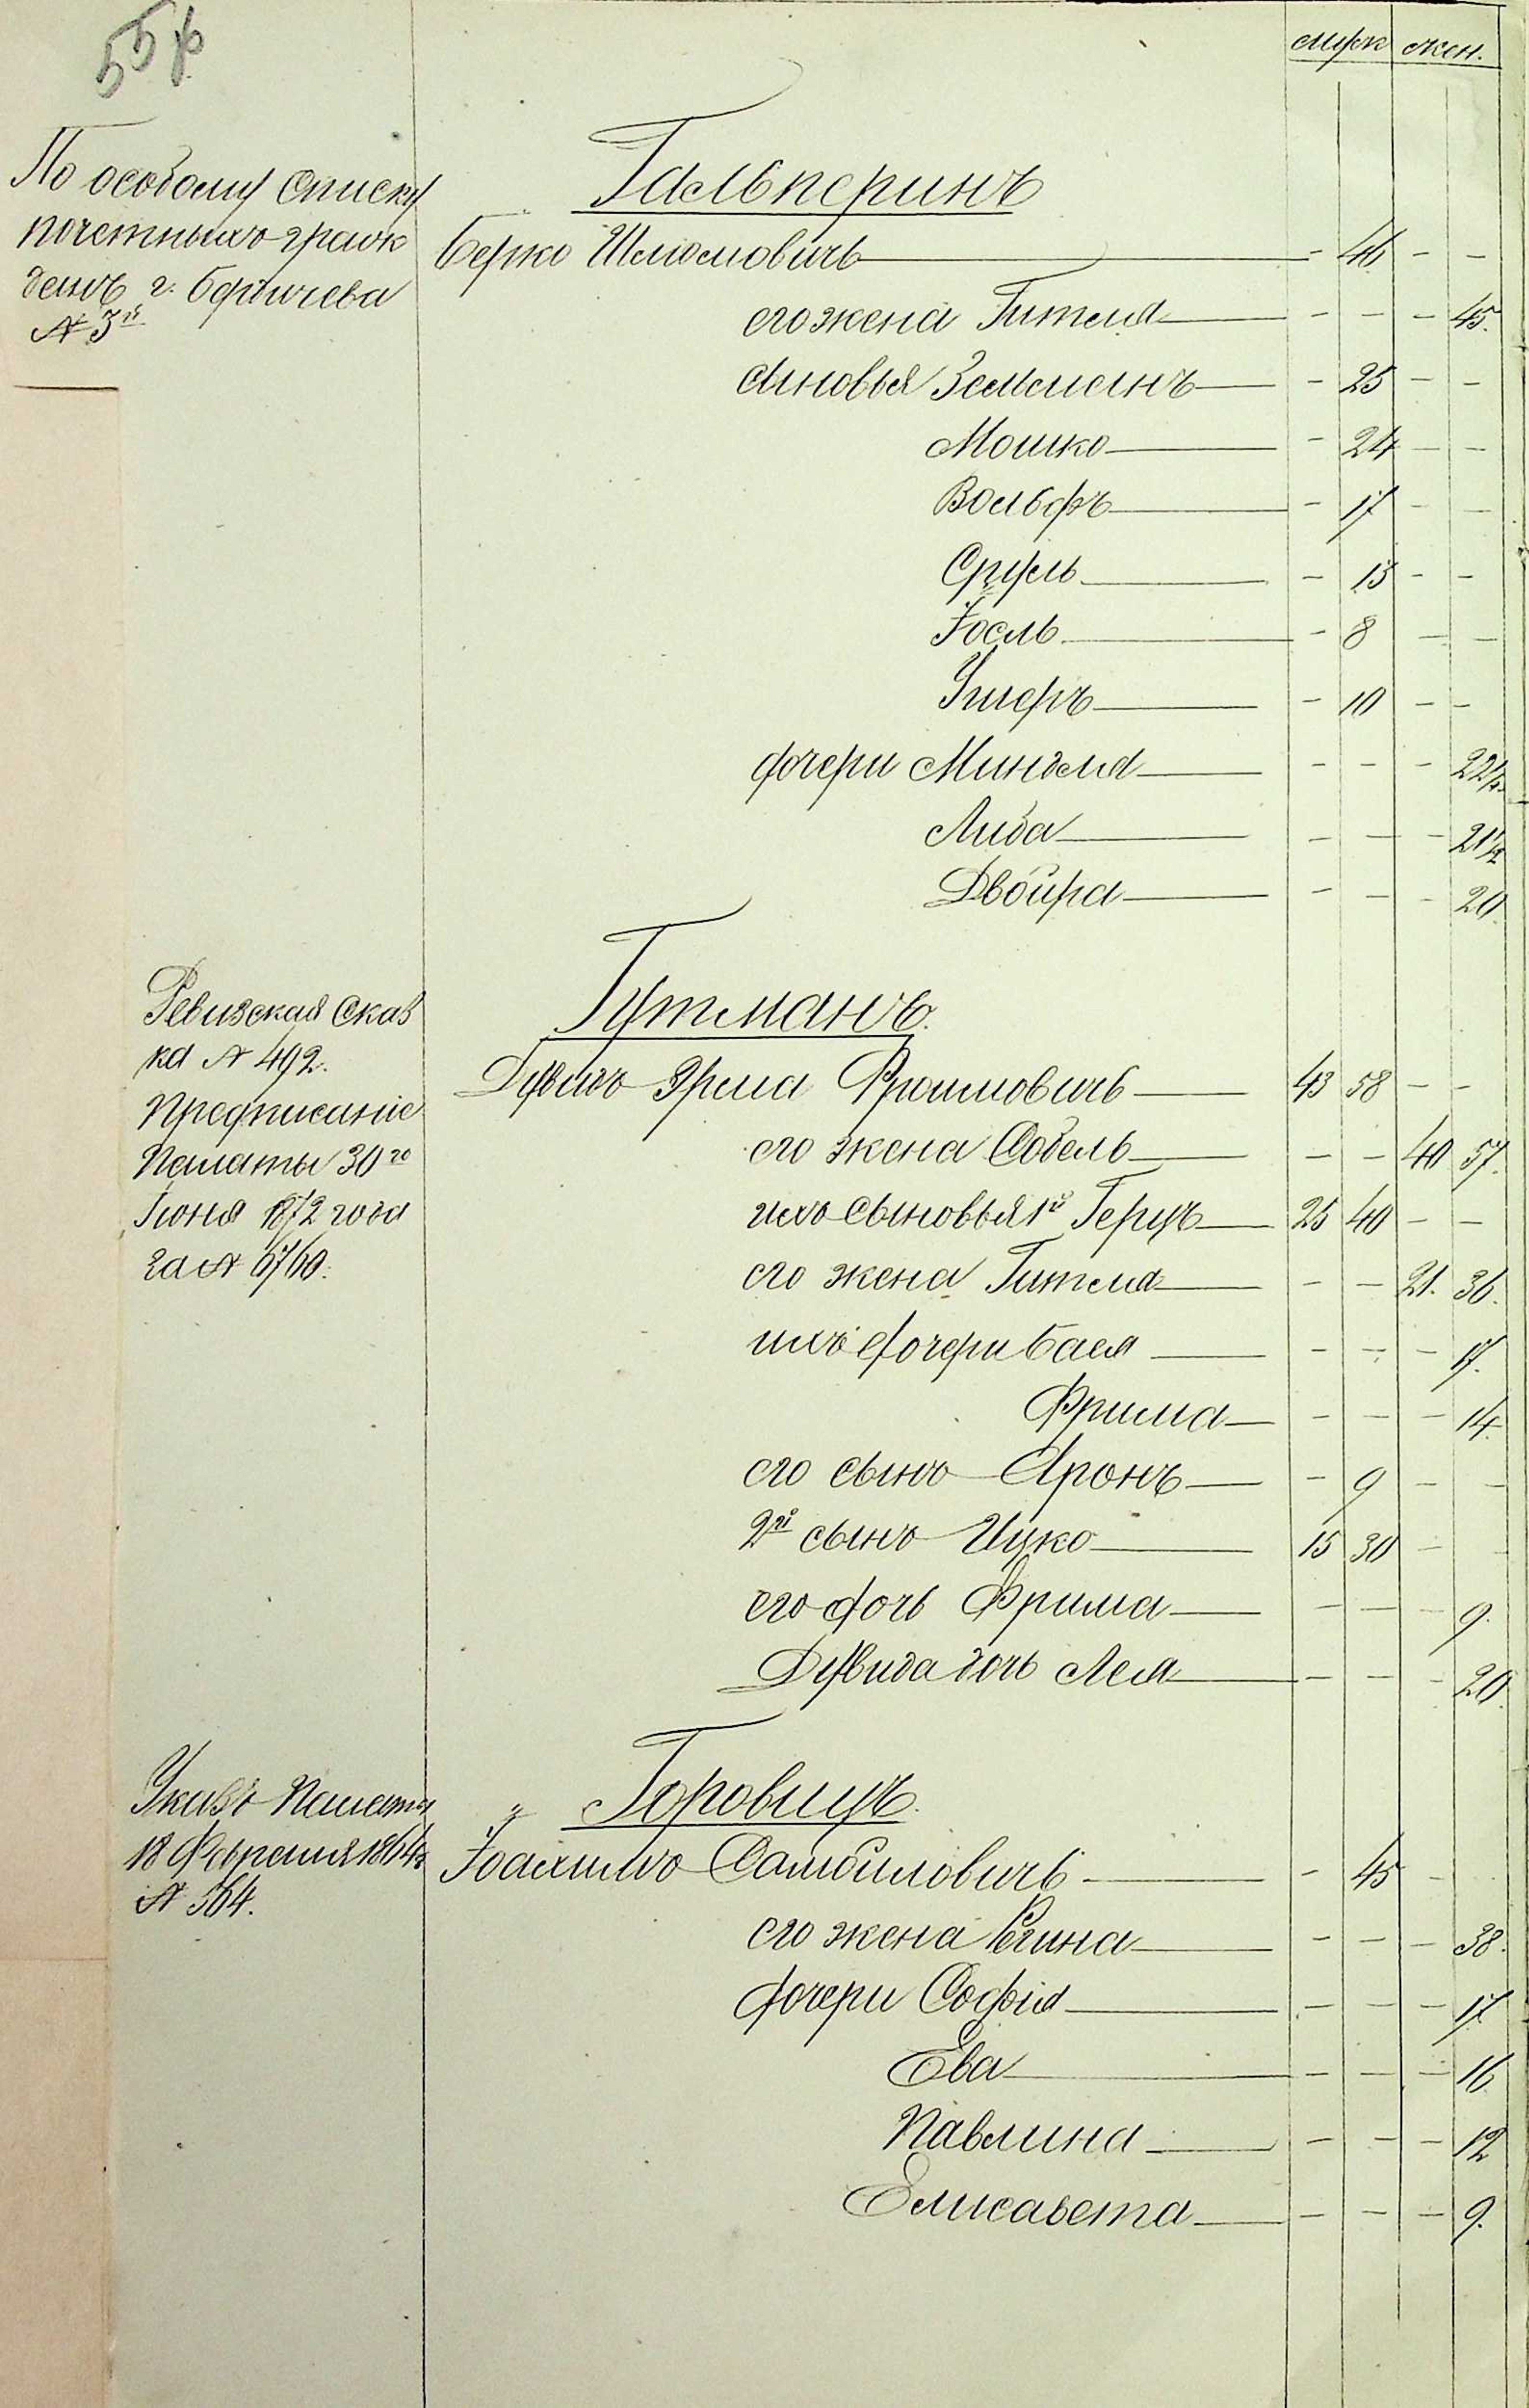 муж жен.
По особому списку
почетныхъ граж
данъ г. Бердичева
№ 3й
Гальперинъ
Берко Шлиомовичъ - 46 - -
его жена Гителя - - - 45.
сыновья Зельманъ - 25 - -
Мошко - 24 - -
Вольфъ - 17 - -
Сруль - 13 - -
Іосль - 8 - -
Ушеръ - 10 - -
дочери Миндля - - - 22½
Либа - - - 21½
Двойра - - - 20
Ревизская сказ
ка № 492.
Предписаніе
Палаты 30го
Іюня 1872 года
за № 6760.
Гутманъ.
Дувидъ Эрша Фроимовичъ 43 58 - -
его жена Собель - - 40 57.
ихъ сыновья 1й Герцъ 25 40 - -
его жена Гителя - - 21. 36.
ихъ дочери Бася - - - 17.
Фрима - - - 14.
его сынъ Аронъ - 9 - -
2й сынъ Ицко 15 30 - -
его дочь Фрима - - - 9.
Дувида дочь Лея - - - 20.
Указъ Палаты
18 Февраля 1864 г
№ 564.
Горовицъ.
Іоахимъ Самойловичъ - 45 -
его жена Регина - - - 38.
дочери Софія - - - 17
Ева - - - 16
Павлина - - - 12
Елисавета - - - 9.